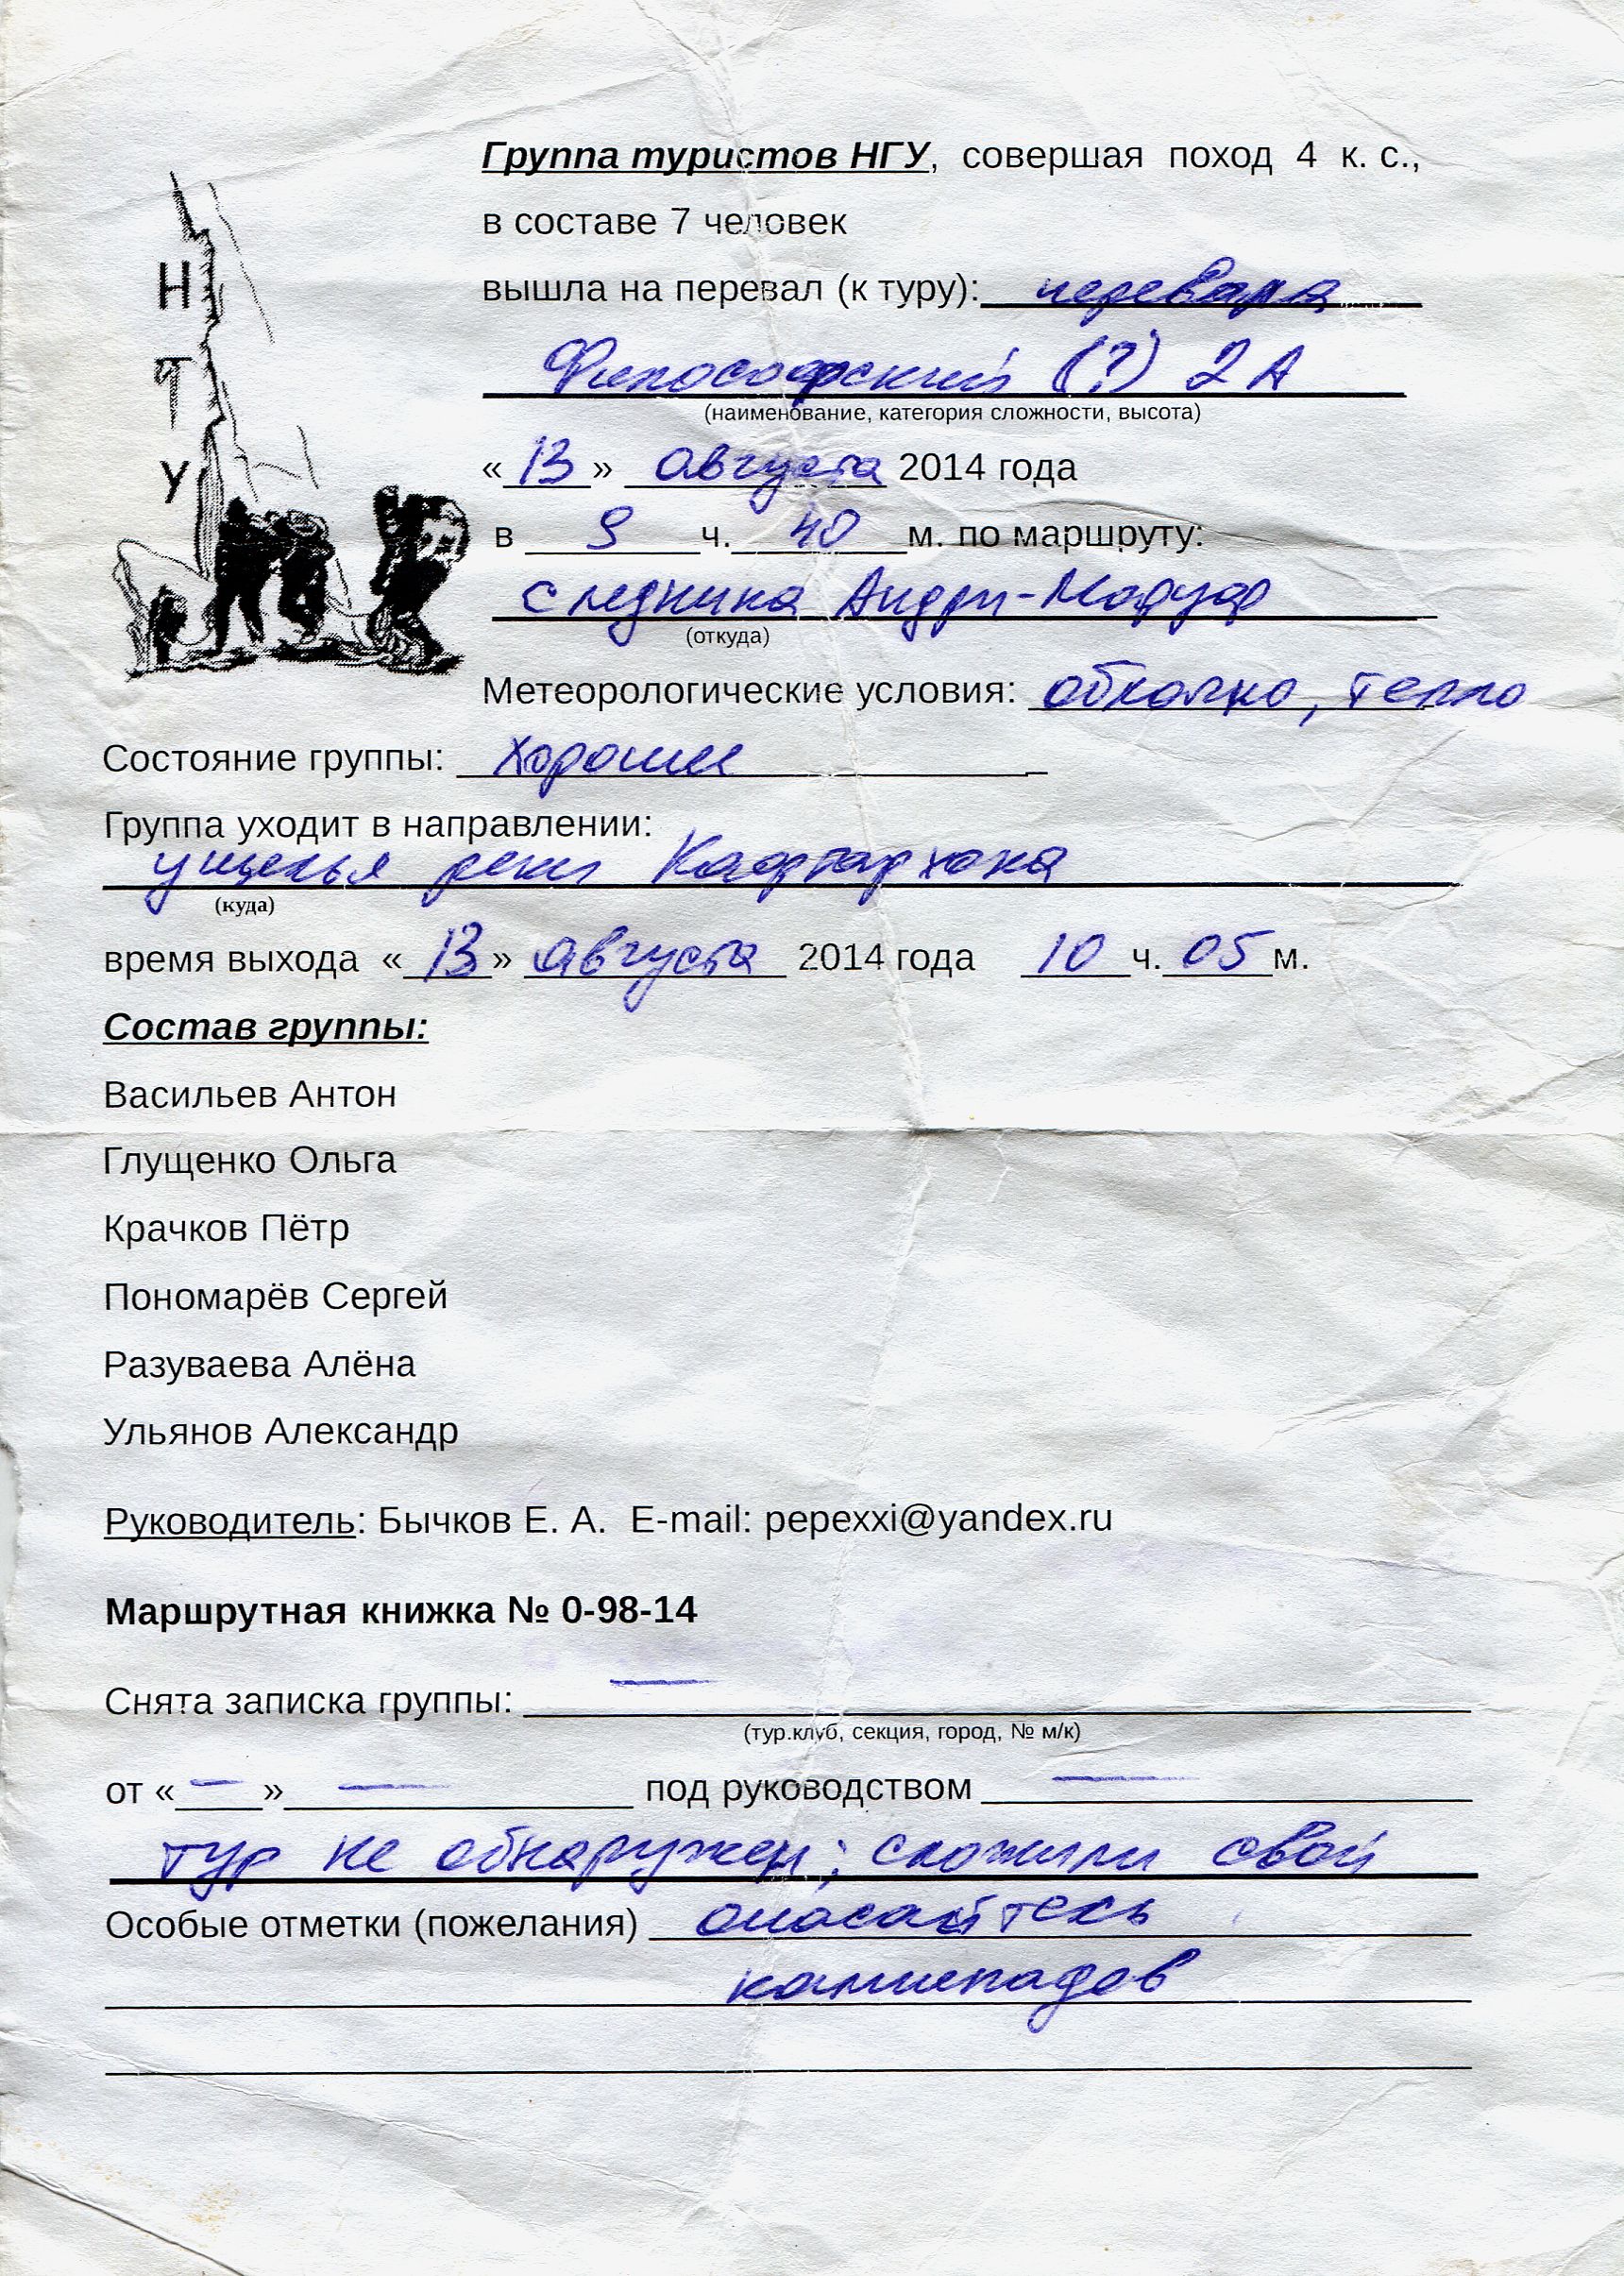 Группа туристов НГУ, совершая поход 4 к. с.,
в составе 7 человек
Н
Т
У
вышла на перевал (к туру): перевала
Философский (?) 2А
(наименование, категория сложности, высота)
«13» августа 2014 года
в 9 ч. 40 м. по маршруту:
с ледника
(откуда)
Метеорологические условия: облачно, тепло
Состояние группы: хорошее
Группа уходит в направлении:
ущелья реки
(куда)
время выхода «13» августа 2014 года 10 ч. 05 м.
Состав группы:
Васильев Антон
Глущенко Ольга
Крачков Пётр
Пономарёв Сергей
Разуваева Алёна
Ульянов Александр
Руководитель: Бычков Е. А. E-mail: pepexxi@yandex.ru
Маршрутная книжка № 0-98-14
Снята записка группы: —
(тур.клуб, секция, город, № м/к)
от «—» — под руководством —
тур не обнаружен; сложили свой
Особые отметки (пожелания) опасайтесь
камнепадов